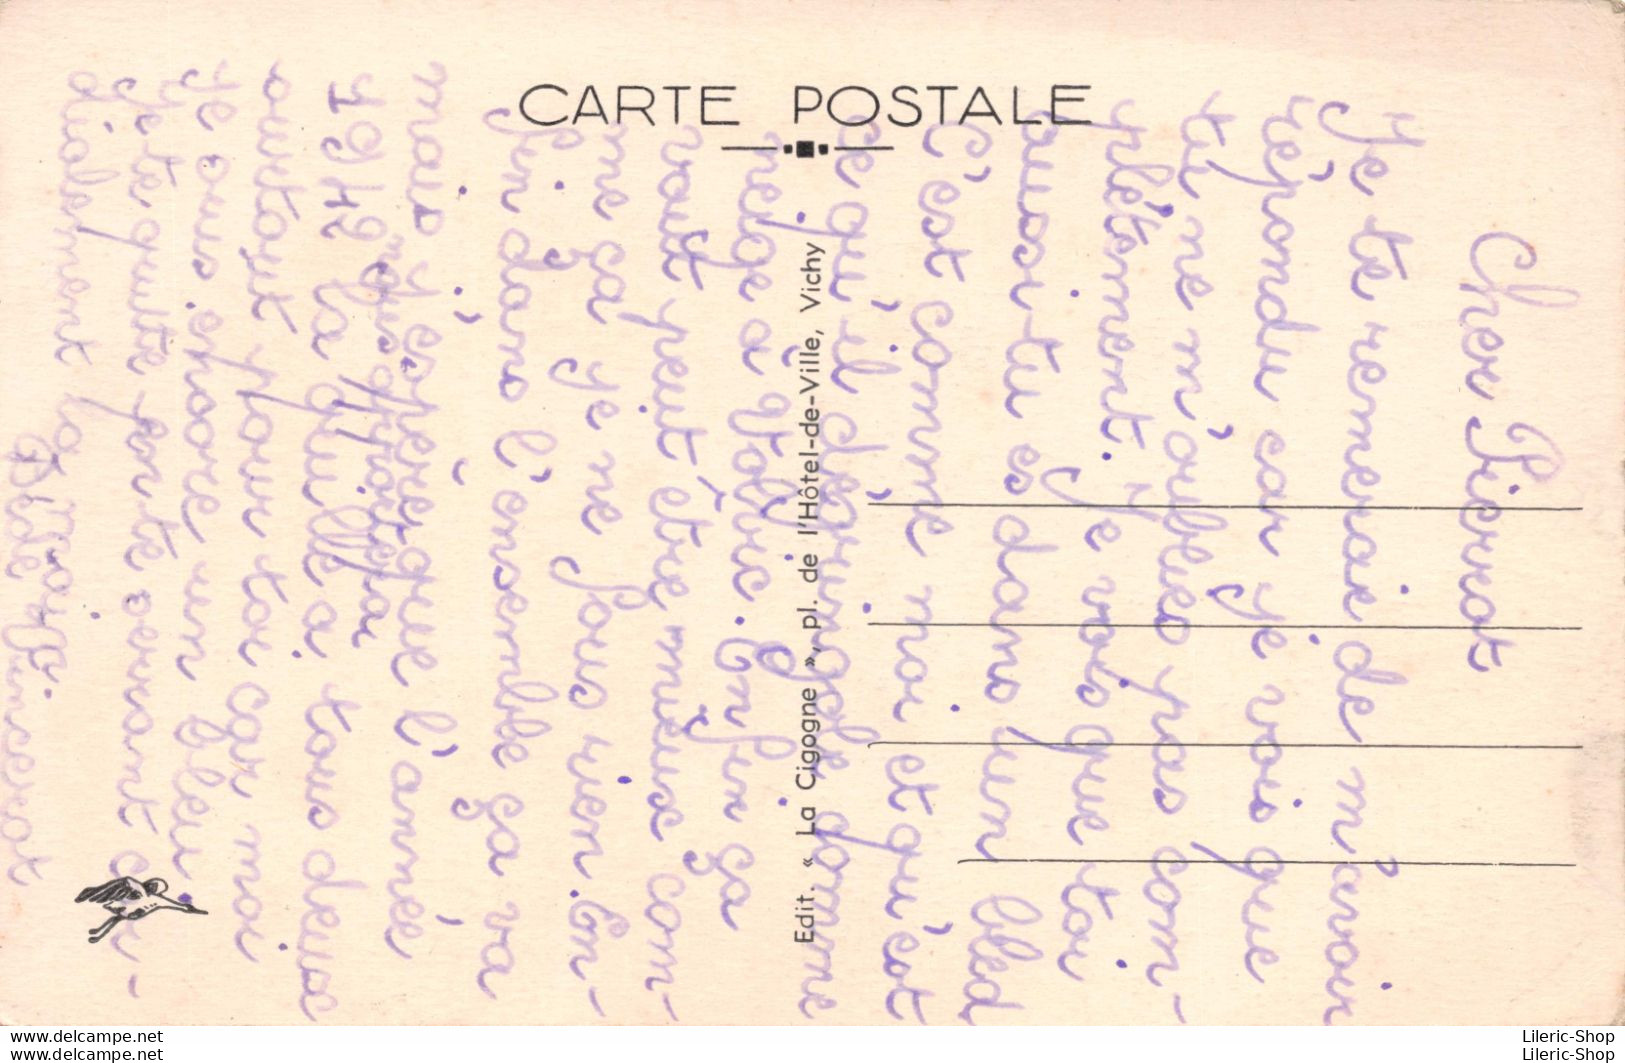 CARTE POSTALE
Edit. « La Cigogne », pl. de l'Hôtel-de-Ville, Vichy
Cher Pierrot
Je te remerçie de m'avoir
répondu car je vois que
tu ne m'oublies pas com-
plétement. Je vois que toi
aussi tu es dans un bled
C'est comme moi et qu'est
ce qu'il dégringole comme
neige à Volvic. Enfin ça
vaut peut être mieux com-
me ça je ne fous rien. En-
fin dans l'ensemble ça va
mais j'espère que l'année
1942 la quille à tous deux
surtout pour toi car moi
je suis encore un bleu.
je te quitte en te serrant cor-
dialement la
Dédé Vincenot